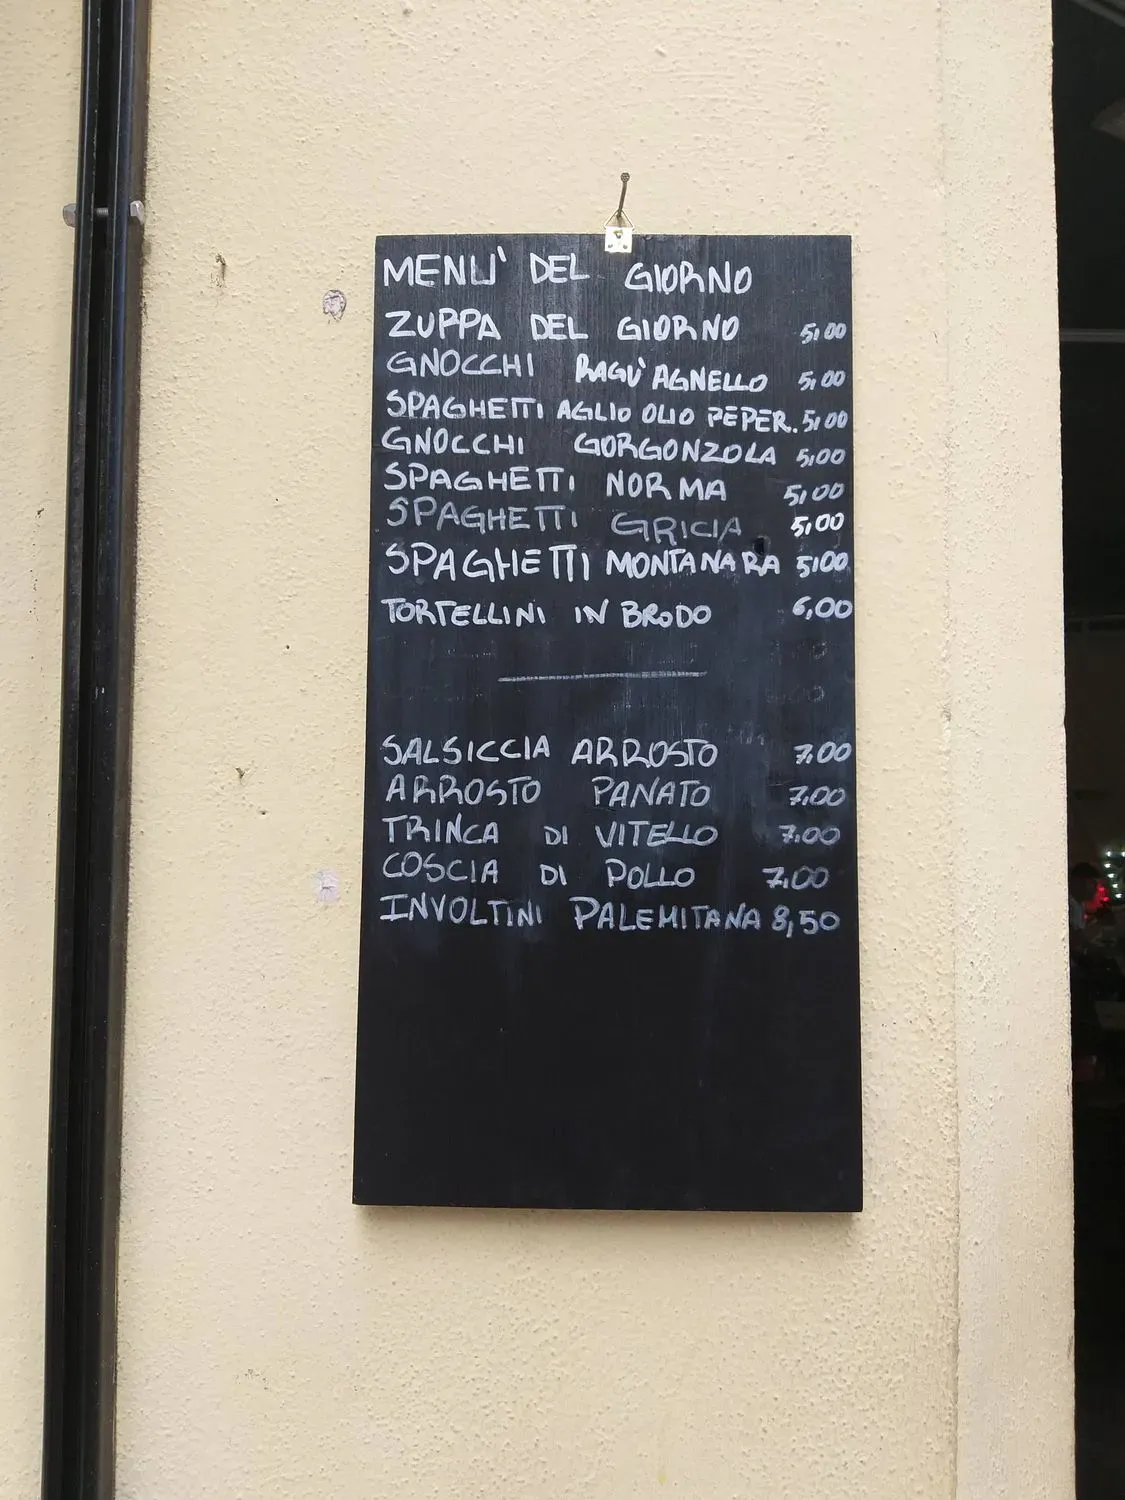 MENU' DEL GIORNO
ZUPPA DEL GIORNO 5,00
GNOCCHI RAGU' AGNELLO 5,00
SPAGHETTI AGLIO OLIO PEPER. 5,00
GNOCCHI GORGONZOLA 5,00
SPAGHETTI NORMA 5,00
SPAGHETTI GRICIA 5,00
SPAGHETTI MONTANARA 5,00
TORTELLINI IN BRODO 6,00
SALSICCIA ARROSTO 7,00
ARROSTO PANATO 7,00
TRINCA DI VITELLO 7,00
COSCIA DI POLLO 7,00
INVOLTINI PALEMITANA 8,50